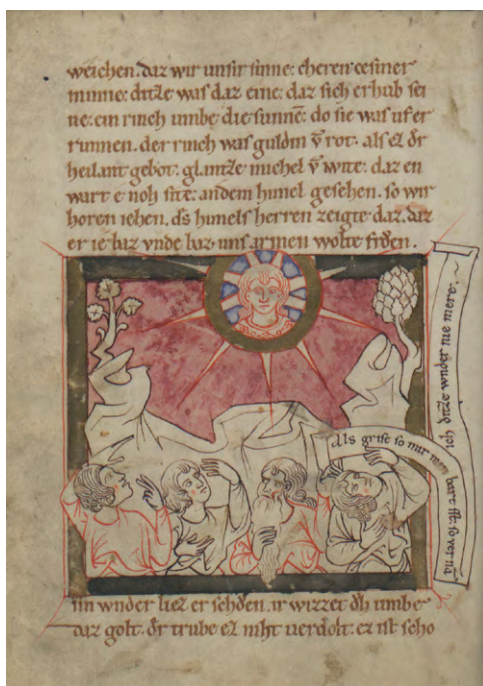 weichen. daz wir unsir sinne: cheren ce siner
minne: ditze was daz eine: daz sich erhub sei
ne: ein rinch umbe die sunnē: do sie was uf er
runnen. der rinch was guldin v̄ rot. als ez dr
heilant gebot: glantze michel v̄ wite: daz en
wart e noh site: an dem himel gesehen. so wir
horen iehen. ds himels herren zeigte daz. daz
er ie baz vnde baz. uns armen wolte frden.
als grise so mir min bart ist: so ver nā
ich ditze wnder nie mere.
im wnder liez er schden. ir wizzet dh umbe
daz golt. dr trube ez niht verdolt: ez ist scho